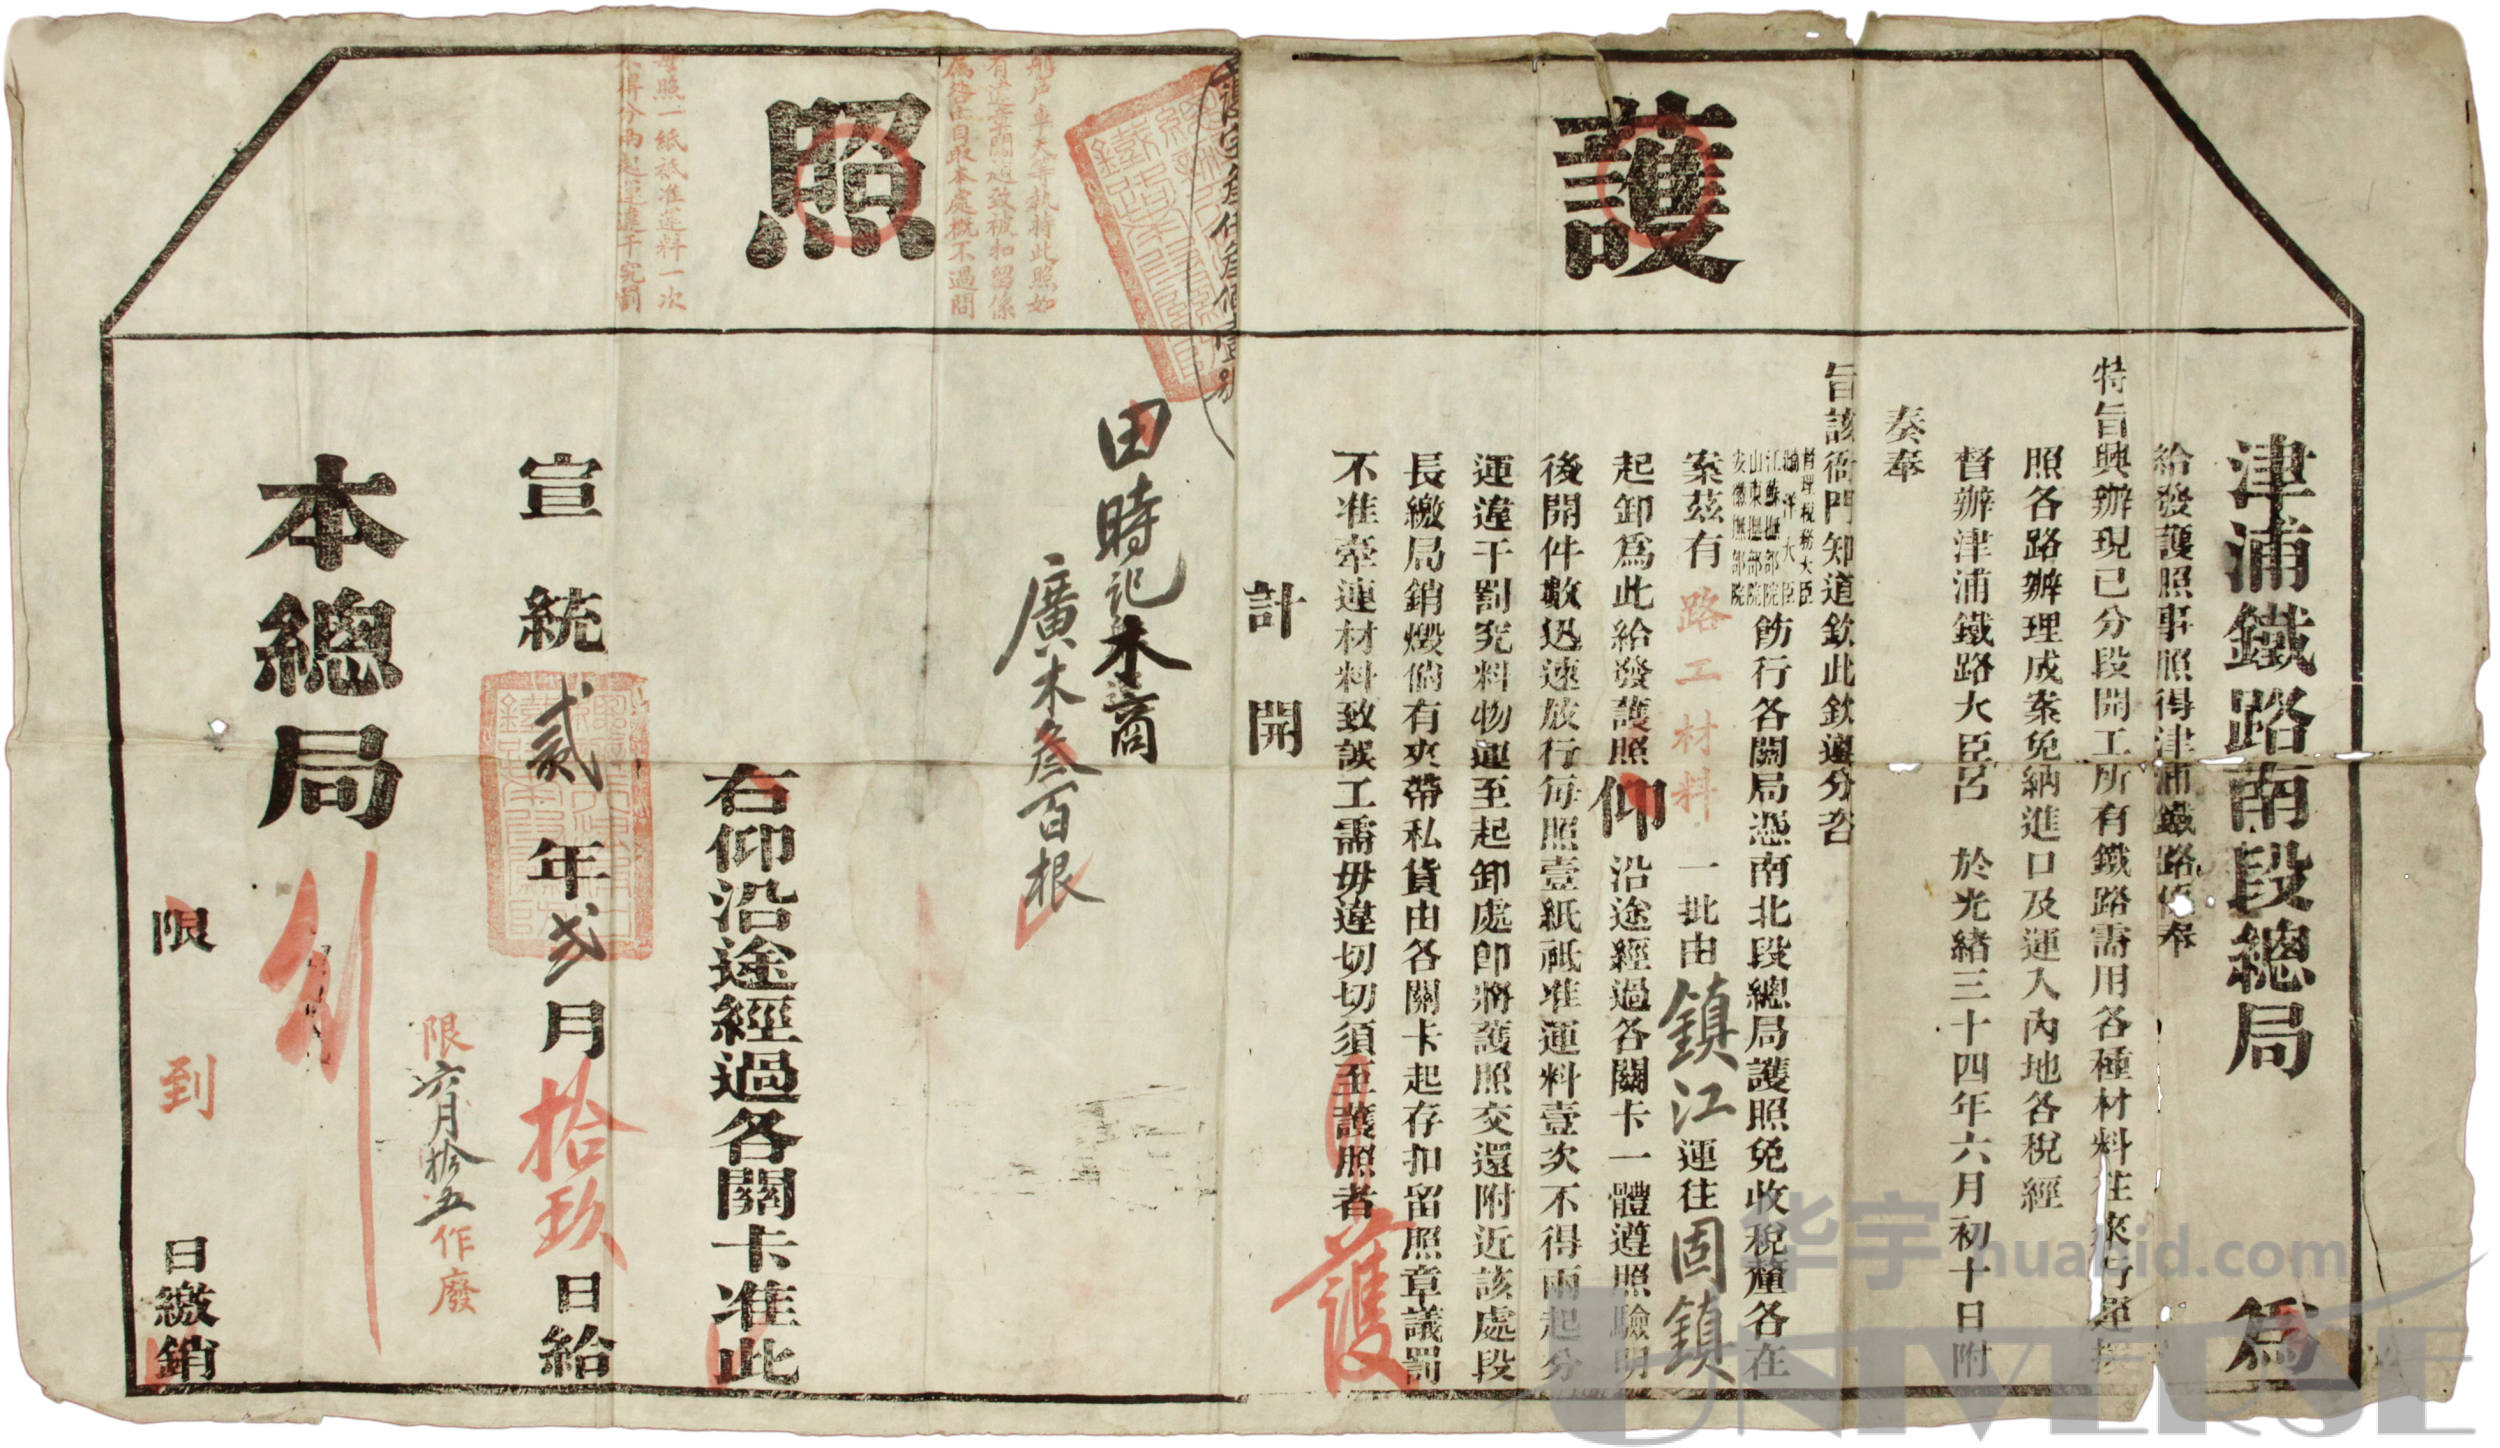 護
照
津浦鐵路南段總局 爲
給發護照事照得津浦鐵路係奉
特旨興辦現已分段開工所有鐵路需用各種材料往來行運按
照各路辦理成案免納進口及運入內地各稅經
督辦津浦鐵路大臣呂 於光緒三十四年六月初十日附
奏奉
旨該衙門知道欽此欽遵分咨
督理稅務大臣
南洋大臣
江蘇撫部院
山東撫部院
安徽撫部院
飭行各關局憑南北段總局護照免收稅釐各在
案茲有路工材料一批由鎮江運往固鎮
起卸爲此給發護照仰沿途經過各關卡一體遵照驗明
後開件數迅速放行每照壹紙祗准運料壹次不得兩起分
運違干罰究料物運至起卸處卽將護照交還附近該處段
長繳局銷燬倘有夾帶私貨由各關卡起存扣留照章議罰
不准牽連材料致誤工需毋違切切須至護照者
護
計開
田時記木商
廣木叁百根
船戶車夫等執持此照如
有違章闖越致被扣留係
屬咎由自取本處概不過問
每照一紙祇准運料一次
不得分兩起運違干究罰
右仰沿途經過各關卡准此
宣統貳年貳月拾玖日給
限六月拾五作廢
本總局
限 到 日繳銷
华宇 huabid.com
UNIVERSE